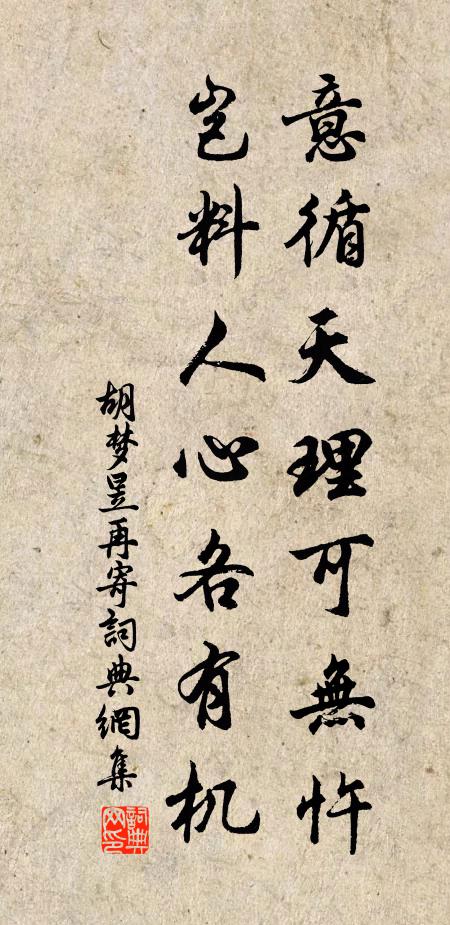 意循天理可無忤
豈料人心各有机
胡梦昱再寄詞典網集
詞典网印